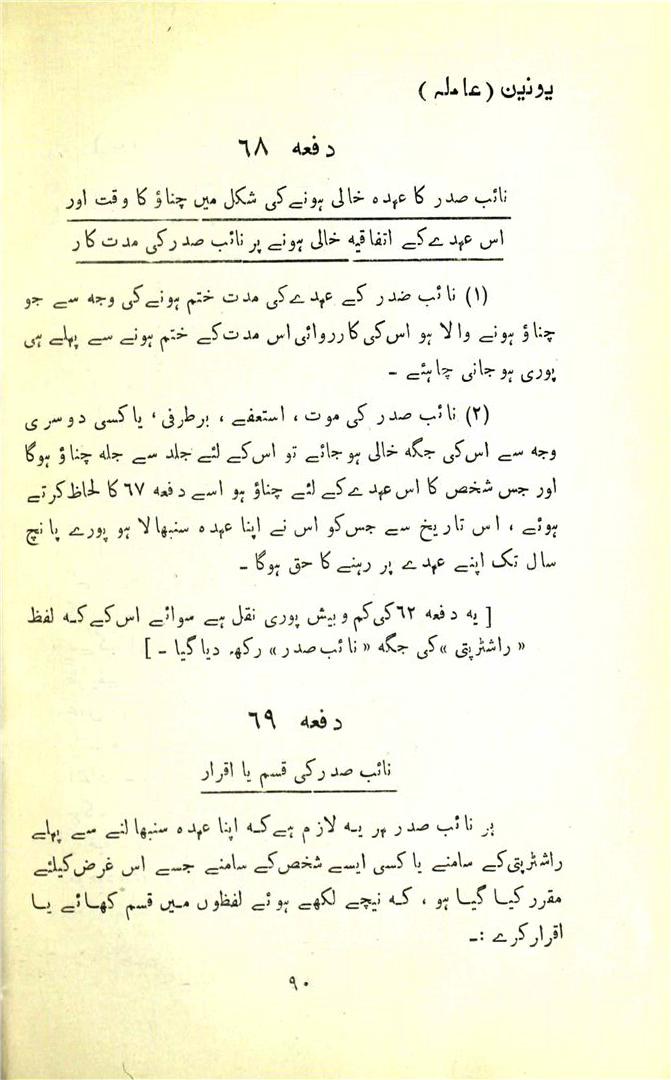 یونین (عاملہ)
دفعہ ٦٨
نائب صدر کا عہدہ خالی ہونے کی شکل میں چناؤ کا وقت اور
اس عہدے کے اتفاقیہ خالی ہونے پر نائب صدر کی مدت کار
(١) نائب ضدر کے عہدے کی مدت ختم ہونے کی وجہ سے جو
چناؤ ہونے والا ہو اس کی کارروائی اس مدت کے ختم ہونے سے پہلے ہی
پوری ہو جانی چاہئے ۔
(٢) نائب صدر کی موت ، استعفے ، برطرفی ، یا کسی دوسری
وجہ سے اس کی جگہ خالی ہو جائے تو اس کے لئے جلد سے جلہ چناؤ ہوگا
اور جس شخص کا اس عہدے کے لئے چناؤ ہو اسے دفعہ ٦٧ کا لحاظ کرتے
ہوئے ، اس تاریخ سے جس کو اس نے اپنا عہدہ سنبھالا ہو پورے پانچ
سال تک اپنے عہدے پر رہنے کا حق ہوگا ۔
[ یہ دفعہ ٦٢ کی کم و بیش پوری نقل ہے سوائے اس کے کہ لفظ
« راشٹرپتی » کی جگہ « نائب صدر » رکھ دیا گیا ۔ ]
دفعہ ٦٩
نائب صدر کی قسم یا اقرار
ہر نائب صدر پر یہ لازم ہے کہ اپنا عہدہ سنبھالنے سے پہلے
راشٹرپتی کے سامنے یا کسی ایسے شخص کے سامنے جسے اس غرض کیلئے
مقرر کیا گیا ہو ، کہ نیچے لکھے ہوئے لفظوں میں قسم کھائے یا
اقرار کرے :۔
٩٠